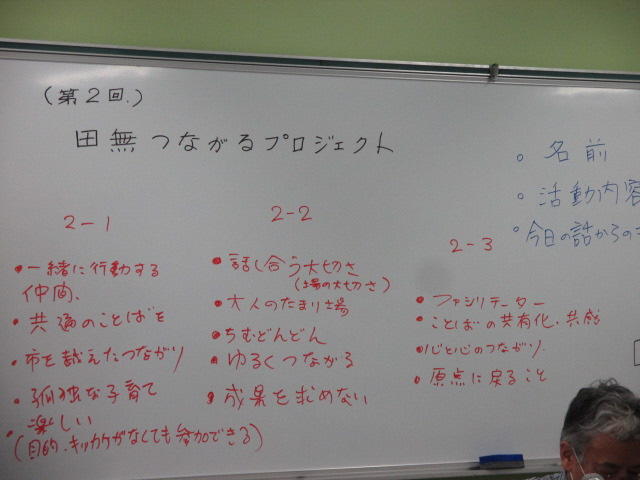 (第2回.)
田無つながるプロジェクト
2-1
・一緒に行動する
仲間、
・共通のことばを
・市を越えたつながり
・孤独な子育て
・楽しい
(目的・キッカケがなくても参加できる)
2-2
・話し合う大切さ
(場の大切さ)
・大人のたまり場
・ちむどんどん
・ゆるくつながる
・成果を求めない
2-3
・ファシリテーター
・ことばの共有化・共感
・心と心のつながり
・原点に戻ること
。名前
。活動内容
。今日の話からの